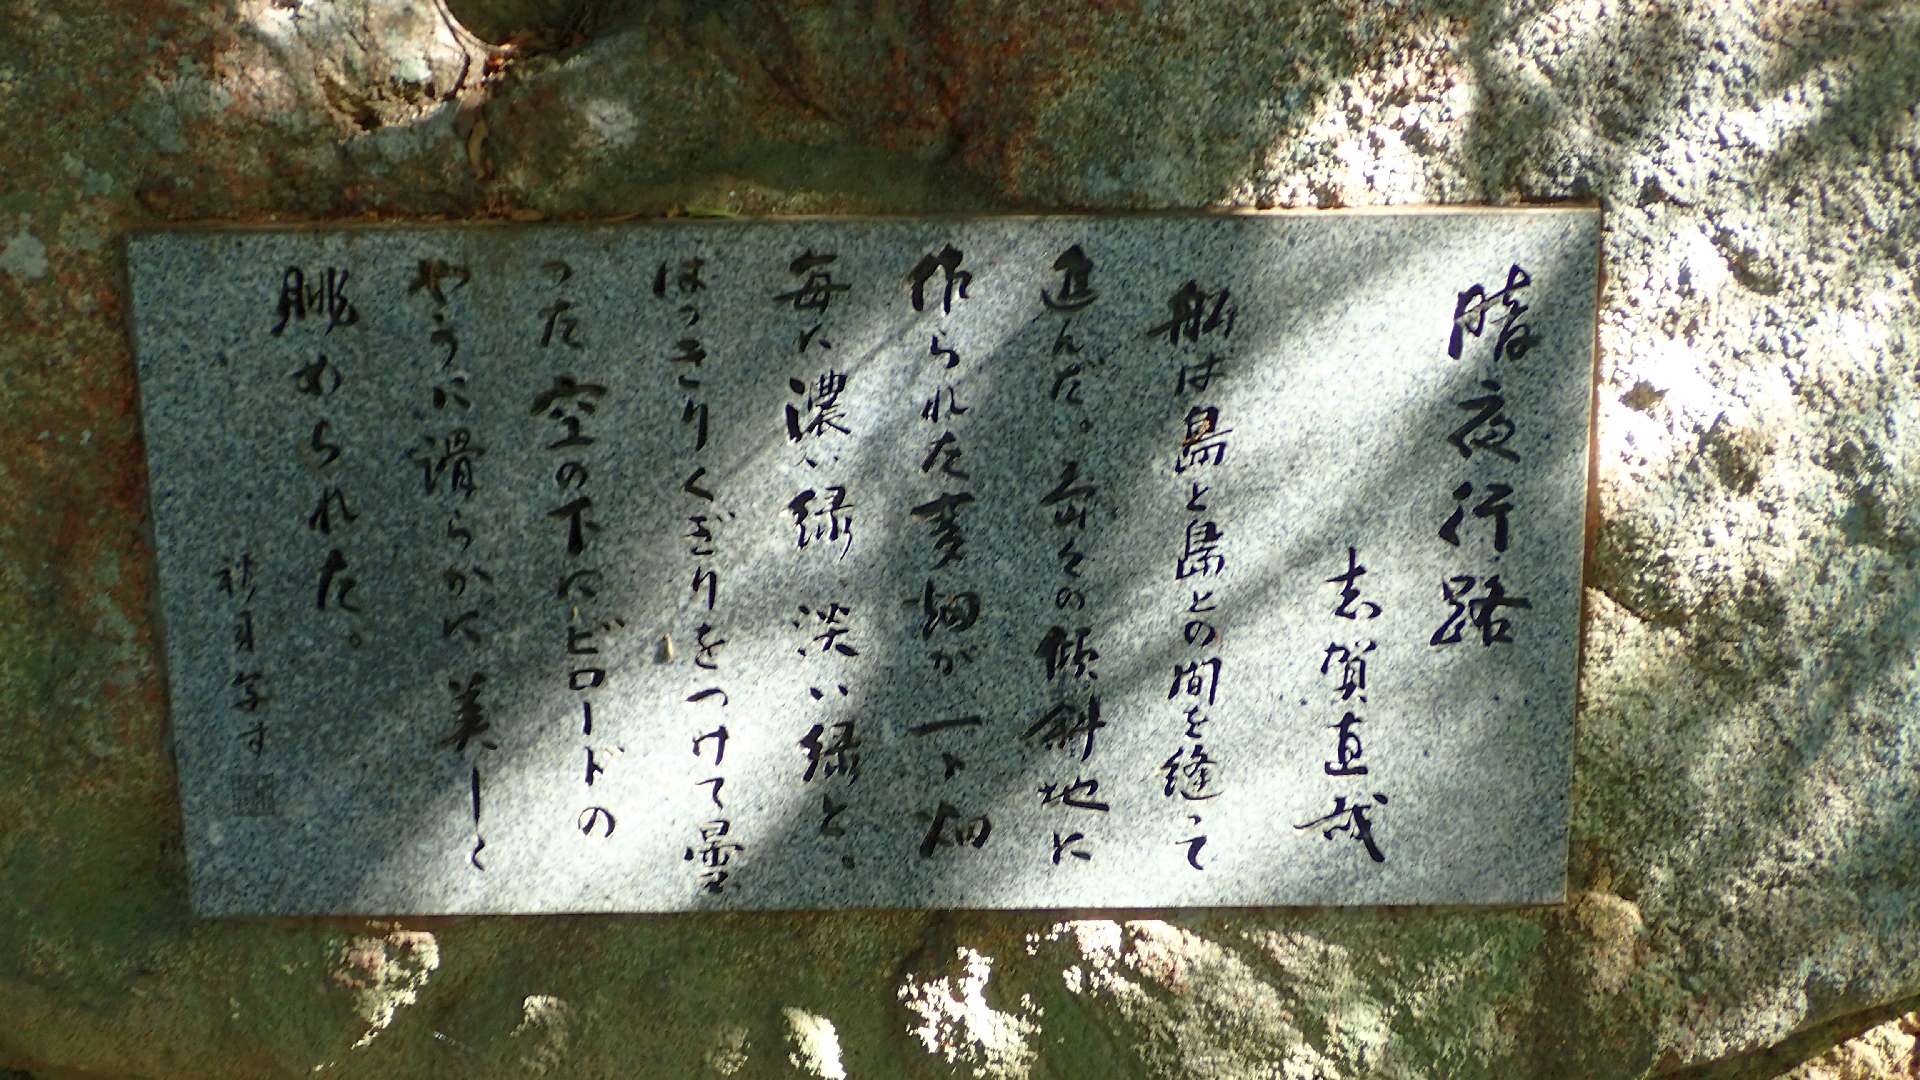 暗夜行路
志賀直哉
船は島と島との間を縫って
進んだ。島々の傾斜地に
作られた麦畑が一ト畑
毎に濃い緑、淡い緑と、
はっきりくぎりをつけて曇
った空の下にビロードの
やうに滑らかに美しく
眺められた。
写す